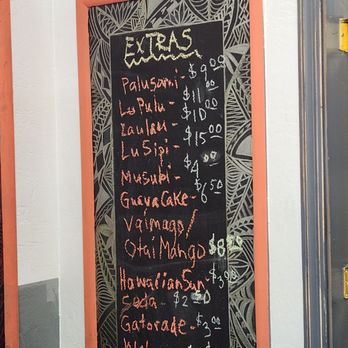 EXTRAS
Palusami - $9.00
Lu Pulu - $11.00
Laulau - $10.00
Lu Sipi - $15.00
Musubi - $4.00
Guava Cake - $6.50
Vaimago/
Otai Mango $8.50
Hawaiian Sun - $3.00
Soda - $2.50
Gatorade - $3.00